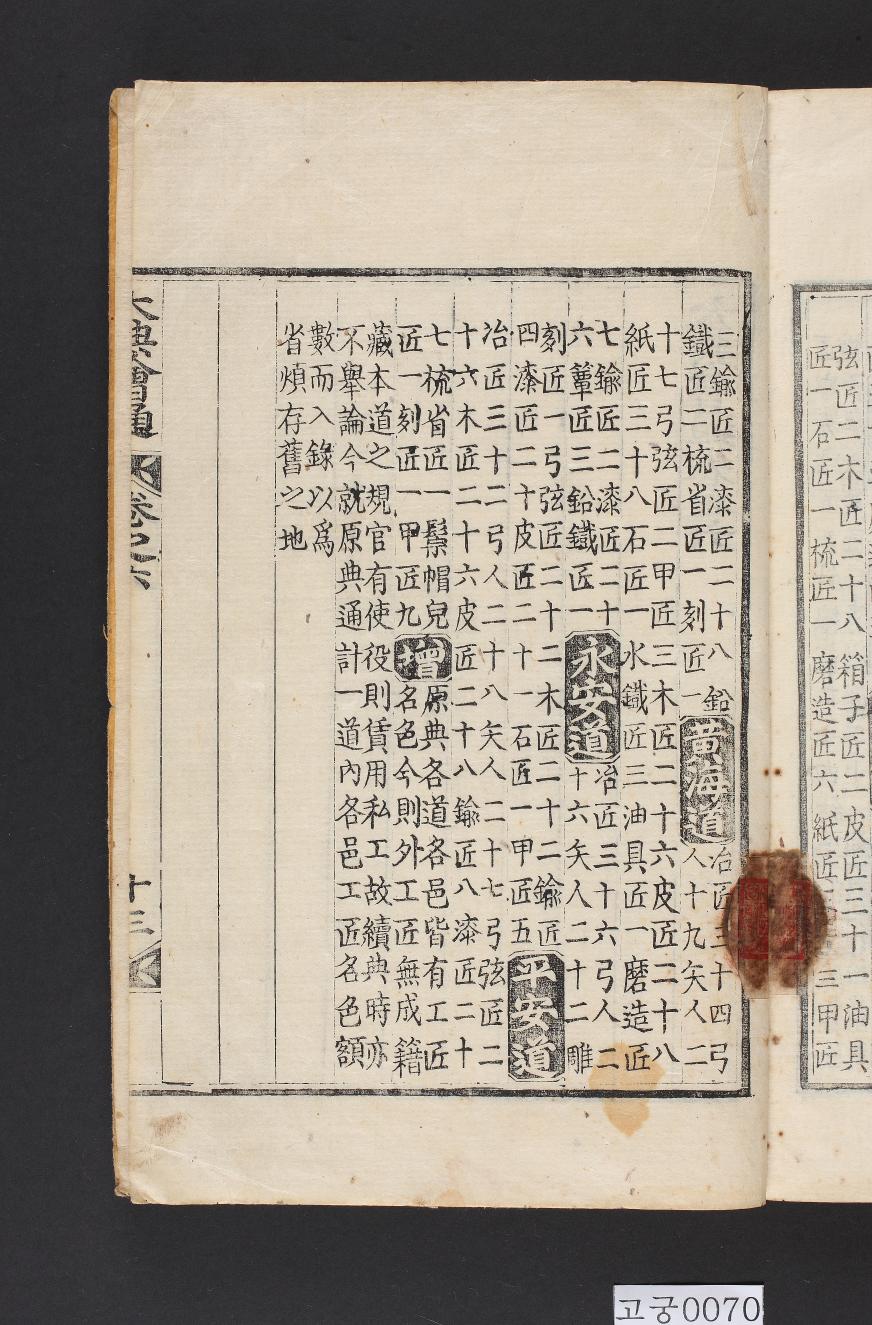 弦匠二木匠二十八箱子匠二皮匠三十一油具
匠一石匠一梳匠一磨造匠六紙匠三甲匠
三鍮匠二漆匠二十八鉛
鐵匠二梳省匠一刻匠一
黃海道
冶匠三十四弓
人十九矢人二
十七弓弦匠二甲匠三木匠二十六皮匠二十八
紙匠三十八石匠一水鐵匠三油具匠一磨造匠
七鍮匠二漆匠二十
六簟匠三鉛鐵匠一
永安道
冶匠三十六弓人二
十六矢人二十二雕
刻匠一弓弦匠二十二木匠二十二鍮匠
四漆匠二十皮匠二十一石匠一甲匠五
平安道
冶匠三十二弓人二十八矢人二十七弓弦匠二
十六木匠二十六皮匠二十八鍮匠八漆匠二十
七梳省匠一鬃帽兒
匠一刻匠一甲匠九
增
原典各道各邑皆有工匠
名色今則外工匠無成籍
藏本道之規官有使役則賃用私工故續典時亦
不擧論今就原典通計一道內各邑工匠名色額
數而入錄以爲
省煩存舊之地
大典會通
卷之六
十三
고궁0070